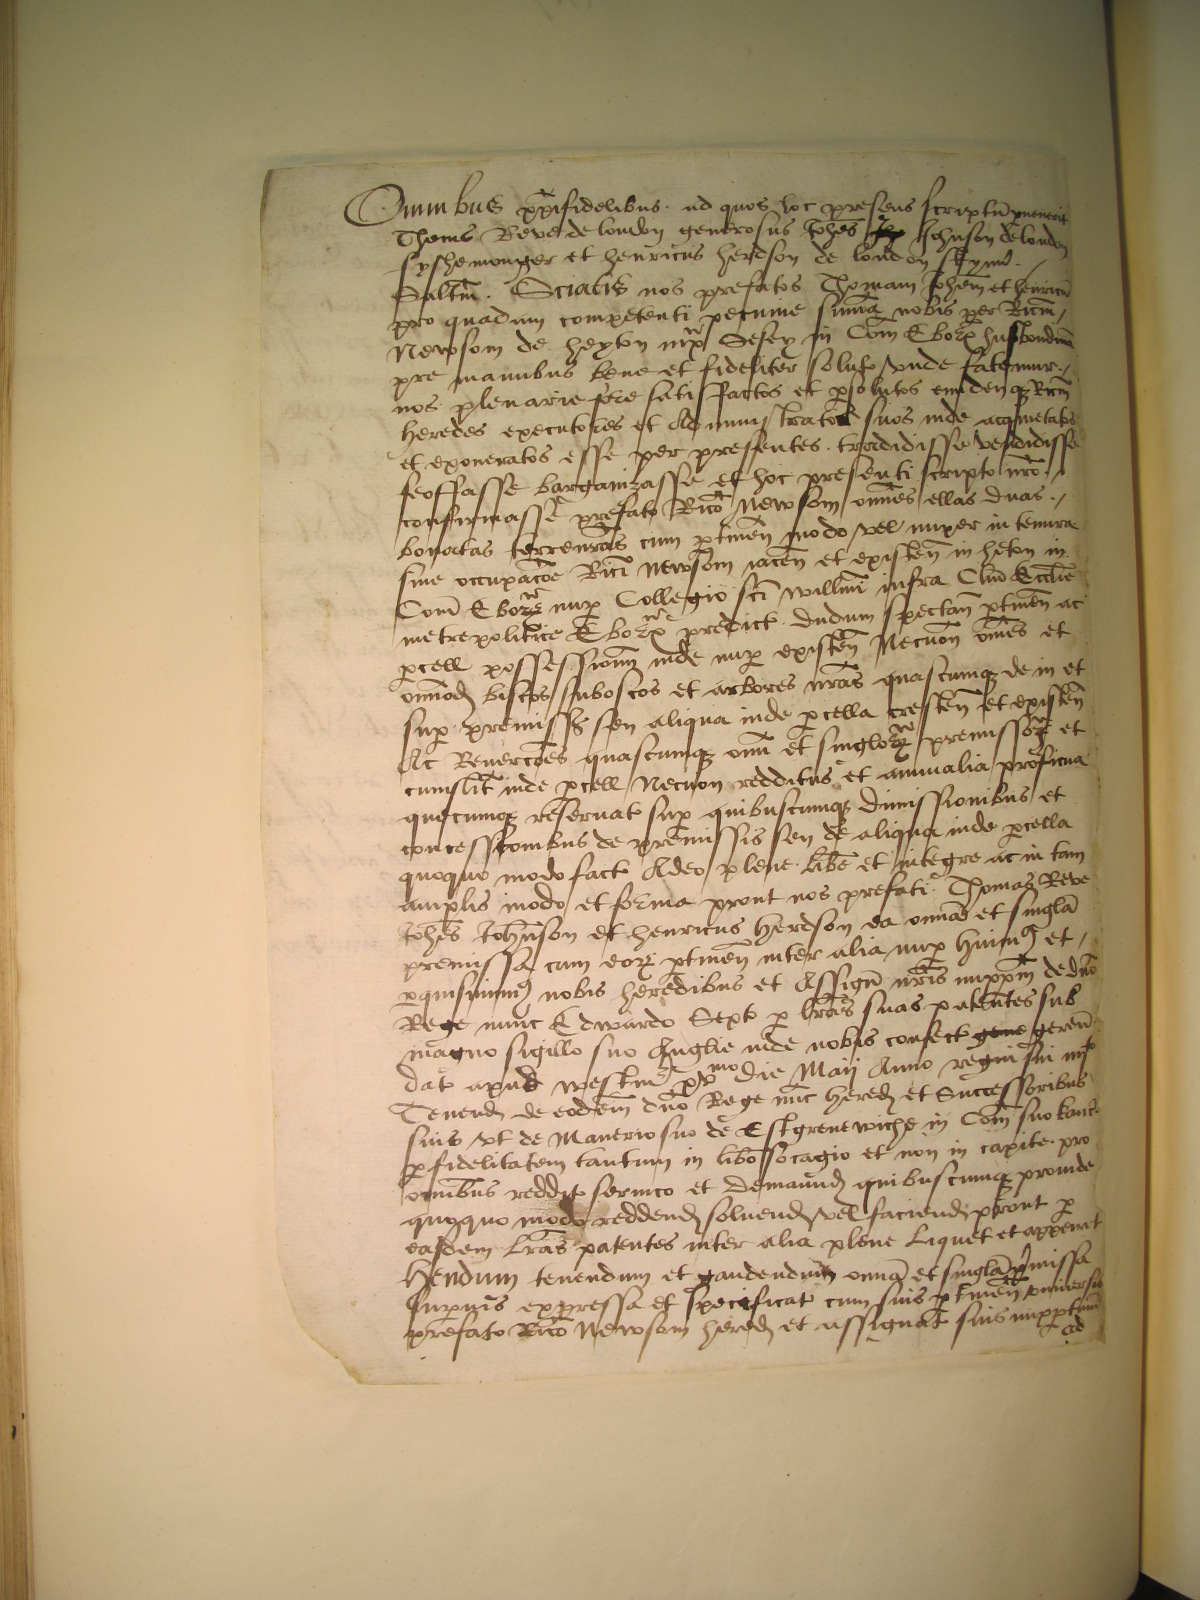 Omnibus xp̄ifidelibus ad quos hoc presens scriptū pervenerit
Thomas Reve de london generosus Joh̄es Johnson de london
fyshemonger et henricus herdson de london skynn̄
Salt̄m. Sciatis nos prefatos Thomam Joh̄em et henricū
pro quadam competenti pecunie sum̄a nobis per Ricm̄
Newsom de heyton iux̄ Sesey in Com̄ Eborꝝ husbondmā
pre manibus bene et fideliter solut vnde fatemur
nos plenarie fore satisfactos et psolutos eundemqꝫ Ricm̄
heredes executores et Administratores suos inde acquietatos
et exoneratos esse per presentes tradidisse vendidisse
feoffasse barganizasse et hoc presenti scripto nr̄o
confirmasse prefato Ricō Newsom om̄es illas duas
bovatas terre nr̄as cum ptinen̄ modo vel nuper in tenura
sive occupac̄oe Rici Newsom iacen̄ et existen̄ in heton in
Com̄ Eborꝝ nup Collegio sc̄i will̄mi infra Cl̄m Eccl̄ie
metropolitice Eborꝝ predict dudum spectan̄ ptinen̄ ac
pcell possessionū inde nup existen̄ Necnon om̄es et
om̄od boscos suboscos et arbores nr̄as quascumqꝫ de in et
sup premissis seu aliqua inde pcella cresceñ et existen̄
Ac Revercōes quascumqꝫ om̄i et singlorꝝ premissorꝝ et
cuiuslit inde pcell Necnon redditus et annualia proficua
quecumqꝫ reservat sup quibuscumqꝫ dimissionibus et
concessionibus de premissis seu de aliqua inde pcella
quoquo modo fact Adeo plene lib̄e et integre ac in tam
amplis modo et forma prout nos prefati Thomas Reve
Joh̄es Joh̄nson et henricus Herdson ea om̄ia et singlā
premissa cum eorꝝ ptinen̄ inter alia nup h̄uimꝰ et
pquisiuimꝰ nobis heredibus et Assign̄ nr̄is imppm̄ de dn̄o
Rege nunc Edwardo Sexto p lr̄as suas patentes sub
magno sigillo suo Anglie inde nobis confect geren̄
dat apud westm̄ mo die Maij Anno regni sui
Tenend de eodem dn̄o Rege nūc hered et Successoribus
suis vt de Manerio suo de Estgrenewiche in Com̄ suo kanc
p fidelitatem tantum in lib̄o socagio et non in capite pro
omībus reddit servico et demaund quibuscumqꝫ proinde
quoquo modo reddend solvend vel faciend prout p
easdem lr̄as patentes inter alia plene liquet et apperit
Hend̄um tenendum et gaudendum om̄ia et singlā p̄missa
superius expressa et specificat cum suis ptinen̄ vniversis
prefato Ricō Newsom hered et assignat suis impptuū
ad